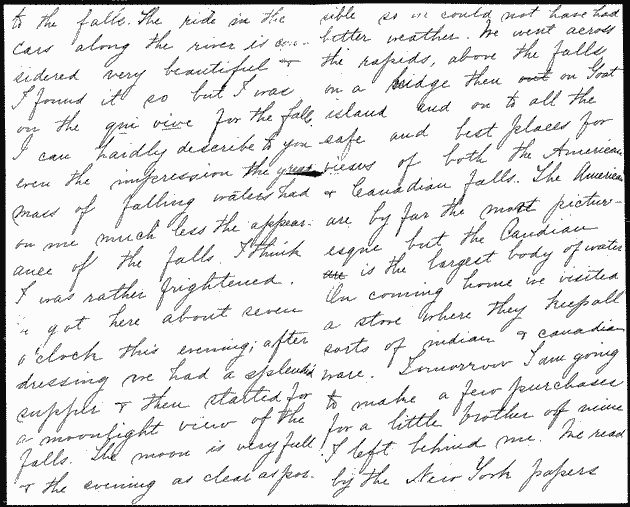 to the falls. The ride in the
cars along the river is con-
sidered very beautiful &
I found it so but I was
on the qui vive for the falls,
I can hardly describe to you
even the impression the great
mass of falling waters had
on me much less the appear-
ance of the falls. I think
I was rather frightened.
got here about seven
o'clock this evening; after
dressing we had a splendid
supper & then started for
a moonlight view of the
falls. The moon is very full
& the evening as clear as pos-
sible so we could not have had
better weather. We went across
the rapids, above the falls
on a bridge then out on Goat
island and on to all the
safe and best places for
views of both the American
& Canadian falls. The American
are by far the most pictur-
esque but the Candian
are is the largest body of water
On coming home we visited
a store where they keep all
sorts of indian & canadian
ware. Tomorrow I am going
to make a few purchases
for a little brother of mine
I left behind me. We read
by the New York papers